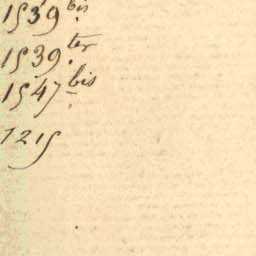 1539 bis
1539 ter
1547 bis
7215